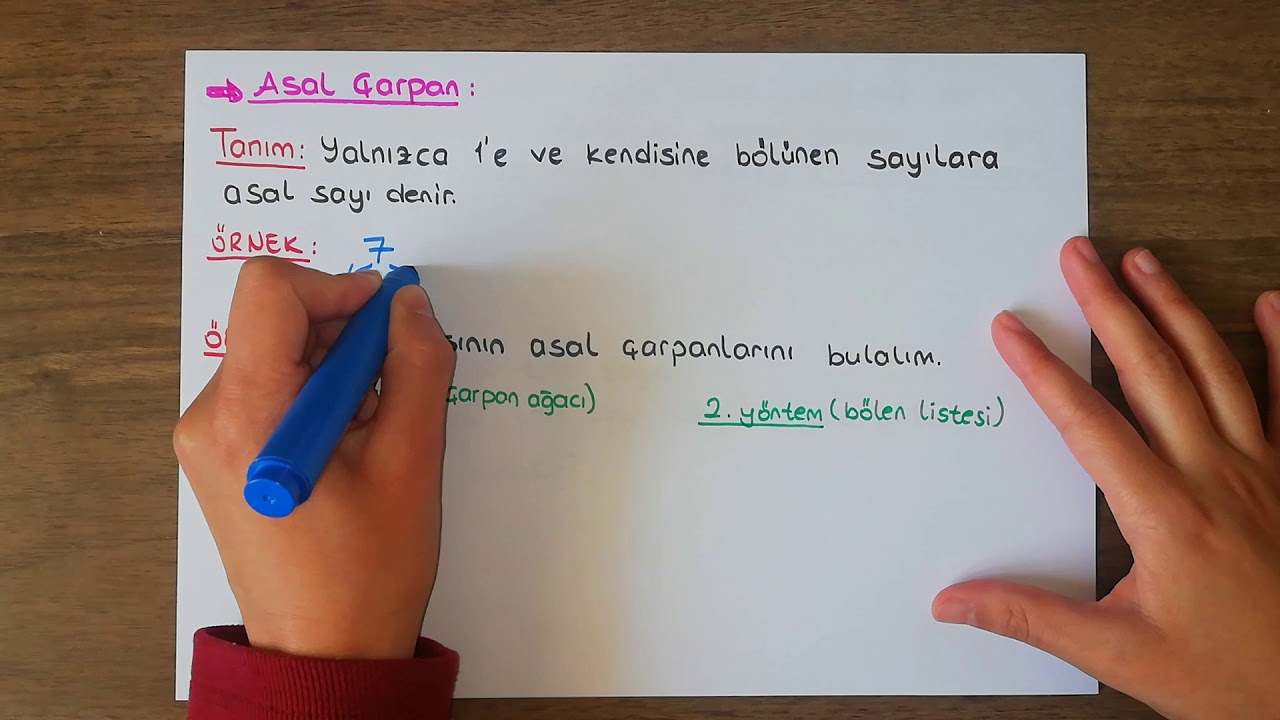 Asal Çarpan:
Tanım: Yalnızca 1'e ve kendisine bölünen sayılara
asal sayı denir.
ÖRNEK: 7
asal çarpanlarını bulalım.
çarpan ağacı)
2. yöntem (bölen listesi)